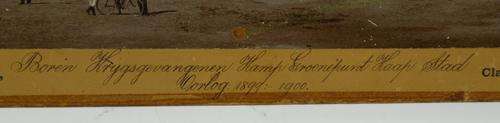 Boren Krygsgevangenen Kamp Groenepunt Kaap Stad
Oorlog 1899-1900.
Cla